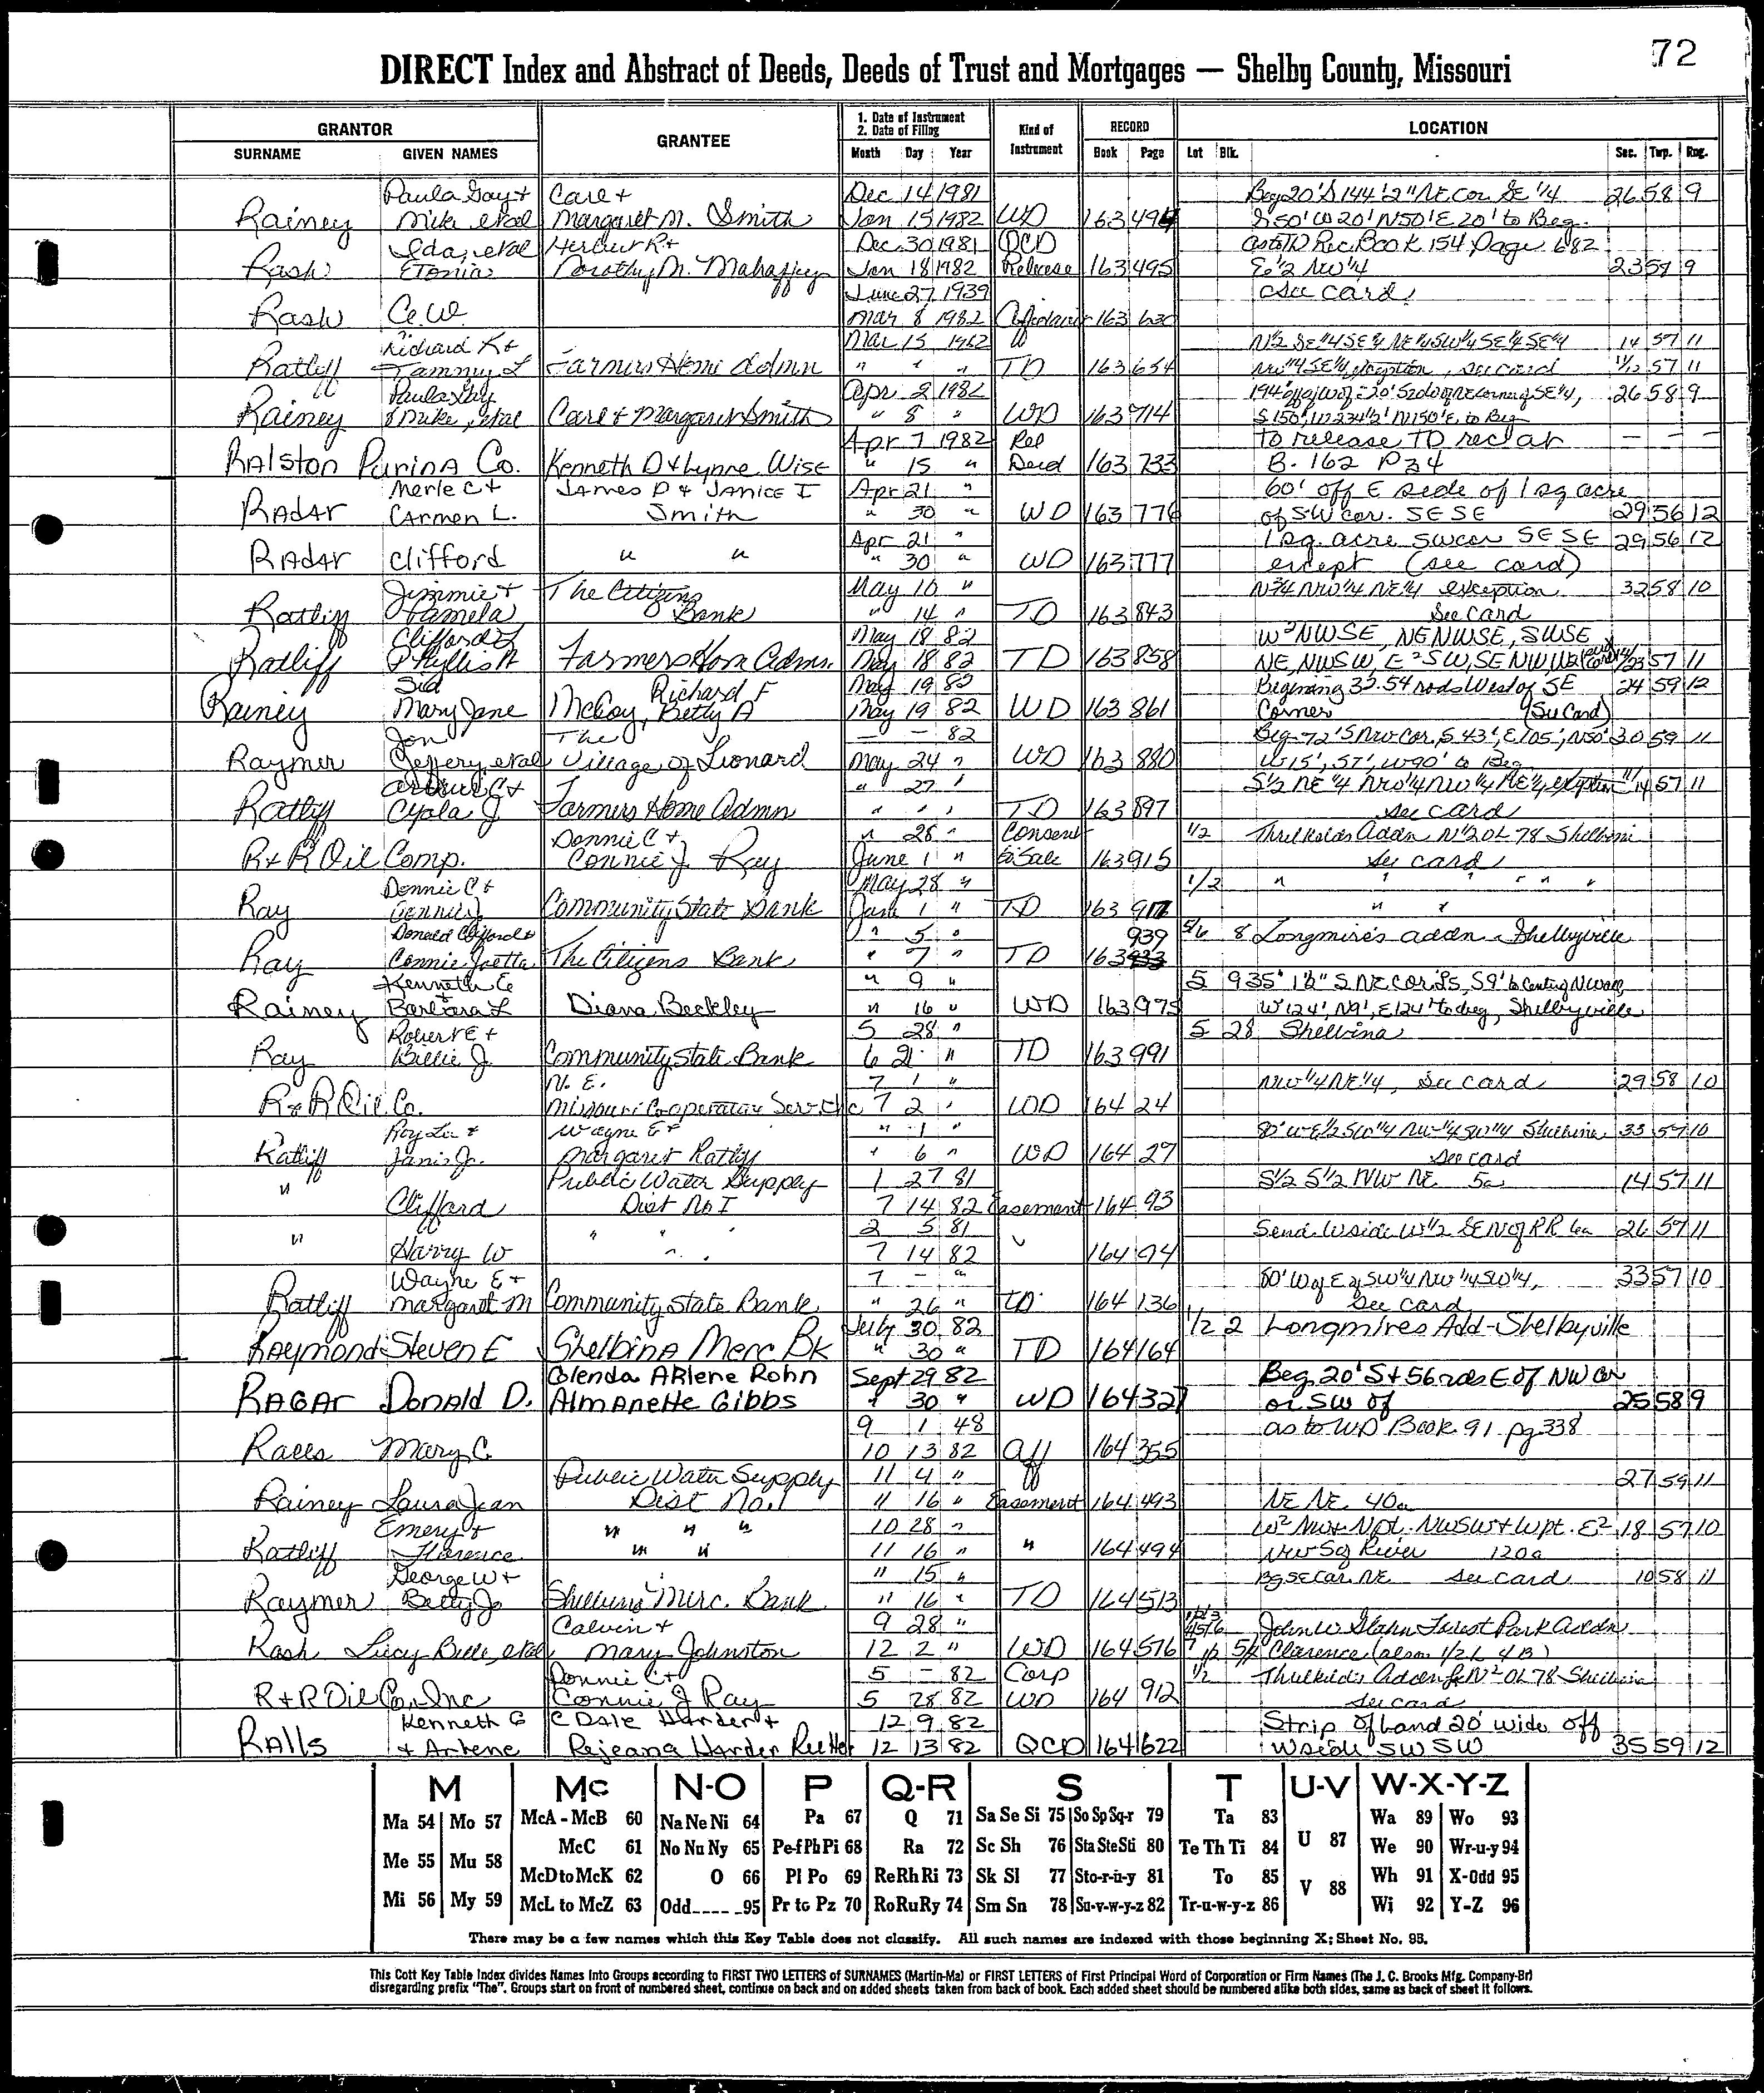 72
DIRECT Index and Abstract of Deeds, Deeds of Trust and Mortgages — Shelby County, Missouri
GRANTOR GRANTEE 1. Date of Instrument 2. Date of Filing Kind of Instrument RECORD LOCATION
SURNAME GIVEN NAMES Month Day Year Book Page Lot Blk. Sec. Twp. Rng.
Paula Gay + Carl + Dec 14 1981 Beg 20' S 144'2" NE Cor SE 1/4 26 58 9
Rainey Mike etal Margaret M. Smith Jan 15 1982 WD 163 494 S 50' W 20' N 50' E 20' to Beg.
Ida, etal Herbert R + Dec 30 1981 QCD as to TD Rec. Book 154 Page 682
Rash Dorothy M. Mahaffey Jan 18 1982 Release 163 495 E 1/2 NW 1/4 23 59 9
June 27 1939 See card
Rash C. W. Mar 8 1982 Affidavit 163 630
Richard R + Mar 15 1982 N 1/2 SE 1/4 SE 1/4 NE 1/4 SW 1/4 SE 1/4 SE 1/4 14 57 11
Ratliff Tammy L Farmers Home Admn " " " TD 163 654 NW 1/4 SE 1/4 exception, see card 11/12 57 11
Paula Gay Apr 2 1982 26 58 9
Rainey & Mike, etal Carl + Margaret Smith " 8 " WD 163 714 S 150', W 234 1/2' N 150' E, to Beg
Apr 7 1982 Rel to release TD rec at — — —
Ralston Purina Co. Kenneth D + Lynne Wise " 15 " Deed 163 733 B. 162 P 34
Merle C + James D + Janice I Apr 21 " 60' off E side of 1 sq acre
Radar Carmen L. Smith " 30 " WD 163 776 of SW cor. SE SE 29 56 12
Apr 21 " 1 sq. acre SW cor SE SE 29 56 12
Radar Clifford " " " 30 " WD 163 777 except (see card)
Jimmie + The Citizens May 10 " N 3/4 NW 1/4 NE 1/4 exception 32 58 10
Ratliff Pamela Bank " 14 " TD 163 843 See Card
Clifford L May 18 82 W² NWSE, NENWSE, SWSE
Ratliff Phyllis A Farmers Hom Admn. May 18 82 TD 163 858 NE, NWSW, E² SW, SENW 57 11
Sid Richard F May 19 82 Beginning 32.54 rods West of SE 24 59 12
Rainey Mary Jane McCoy, Betty A May 19 82 WD 163 861 Corner (See Card)
Jon The — — 82 Beg 72' S NW Cor, S 43', E 105', N 50' 30 59 11
Raymer Jeffery, etal Village of Leonard May 24 " WD 163 880 W 15', S 7', W 90' to Beg
Arthur C + " 27 " S 1/2 NE 1/4 NW 1/4 NW 1/4 NE 1/4 exception 11/14 57 11
Ratliff Farmers Home Admn " " " TD 163 897 See card
Donnie C + " 28 " Consent 1/2 Threlkelds Addn N 1/2 OL 78 Shelbina
R + R Oil Comp. Connie J Ray June 1 " to Sale 163 915 See card
Donnie C + May 28 " 1/2 " " " " " "
Ray Connie J Community State Bank June 1 " TD 163 917 " "
Donald Clifford + " 5 " 939 5/6 8 Longmire's addn Shelbyville
Ray Connie Joetta The Citizens Bank " 7 " TD 163 933
Kenneth E " 9 " 5 9 35' 1 1/2" S NE cor L 5, S 9' to Center of N wall
Rainey Barbara L Diana Beckley " 16 " WD 163 975 W 124', N 9', E 124' to beg, Shelbyville
Robert E + 5 28 " 5 28 Shelbina
Ray Billie J Community State Bank 6 2 " TD 163 991
N. E. 7 1 " NW 1/4 NE 1/4, See card 29 58 10
R + R Oil Co. Missouri Cooperative Serv. Inc 7 2 " WD 164 24
Roy Lee + Wayne E + " 1 " 80' W E 1/2 SW 1/4 NW 1/4 SW 1/4 Shelbina 33 57 10
Ratliff Janis Jo. Margaret Ratliff " 6 " WD 164 27 See card
Public Water Supply 1 27 81 S 1/2 S 1/2 NW NE 5a 14 57 11
" Clifford Dist No I 7 14 82 Easement 164 93
2 5 81 S end W side W 1/2 SE N of RR 6a 26 57 11
" Harry W " " 7 14 82 " 164 94
Wayne E + 7 — " 80' W of E of SW 1/4 NW 1/4 SW 1/4, 33 57 10
Ratliff Margaret M Community State Bank " 26 " TD 164 136 See card
July 30 82 1/2 2 Longmires Add - Shelbyville
Raymond Steven E Shelbina Merc Bk " 30 " TD 164 164
Glenda Arlene Rohn Sept 29 82 Beg 20' S + 56 rds E of NW cor
Ragar Donald D. Almanette Gibbs " 30 " WD 164 327 of SW of 25 58 9
9 1 48 as to WD Book 91 pg 338
Ralls Mary C. 10 13 82 Aff 164 355
Public Water Supply 11 4 " 27 59 11
Rainey Laura Jean Dist No. 1 11 16 " Easement 164 493 NE NE 40a
Emery + " " " 10 28 " W² NW + N pt. NWSW + W pt. E² 18 57 10
Ratliff Florence " " 11 16 " " 164 494 NW SQ River 120a
George W + " 15 " Bg SE Cor NE See card 10 58 11
Raymer Betty Jo Shelbina Merc. Bank " 16 " TD 164 513
Calvin + 9 28 " John W Glahn Forest Park Addn
Rash Lucy Belle, etal Mary Johnston 12 2 " WD 164 576 Clarence (also 1/2 L 4 B)
Donnie C + 5 — 82 Corp 1/2 Threlkeld's Adden for N² OL 78 Shelbina
R + R Oil Co. Inc Connie J Ray 5 28 82 WD 164 912 See card
Kenneth G C Dale Harder + 12 9 82 Strip of Land 20' wide off
Ralls + Arlene Rejeana Harder Rutter 12 13 82 QCD 164 622 W side SW SW 35 59 12
M Mc N-O P Q-R S T U-V W-X-Y-Z
Ma 54 Mo 57 McA - McB 60 Na Ne Ni 64 Pa 67 Q 71 Sa Se Si 75 So Sp Sq-r 79 Ta 83 U 87 Wa 89 Wo 93
McC 61 No Nu Ny 65 Pe-f Ph Pi 68 Ra 72 Sc Sh 76 Sta Ste Sti 80 Te Th Ti 84 We 90 Wr-u-y 94
Me 55 Mu 58 McD to McK 62 O 66 Pl Po 69 Re Rh Ri 73 Sk Sl 77 Sto-r-ü-y 81 To 85 V 88 Wh 91 X-Odd 95
Mi 56 My 59 McL to McZ 63 Odd 95 Pr to Pz 70 Ro Ru Ry 74 Sm Sn 78 Su-v-w-y-z 82 Tr-u-w-y-z 86 Wi 92 Y-Z 96
There may be a few names which this Key Table does not classify. All such names are indexed with those beginning X; Sheet No. 95.
This Cott Key Table Index divides Names Into Groups according to FIRST TWO LETTERS of SURNAMES (Martin-Ma) or FIRST LETTERS of First Principal Word of Corporation or Firm Names (The J. C. Brooks Mfg. Company-Br)
disregarding prefix "The". Groups start on front of numbered sheet, continue on back and on added sheets taken from back of book. Each added sheet should be numbered alike both sides, same as back of sheet it follows.